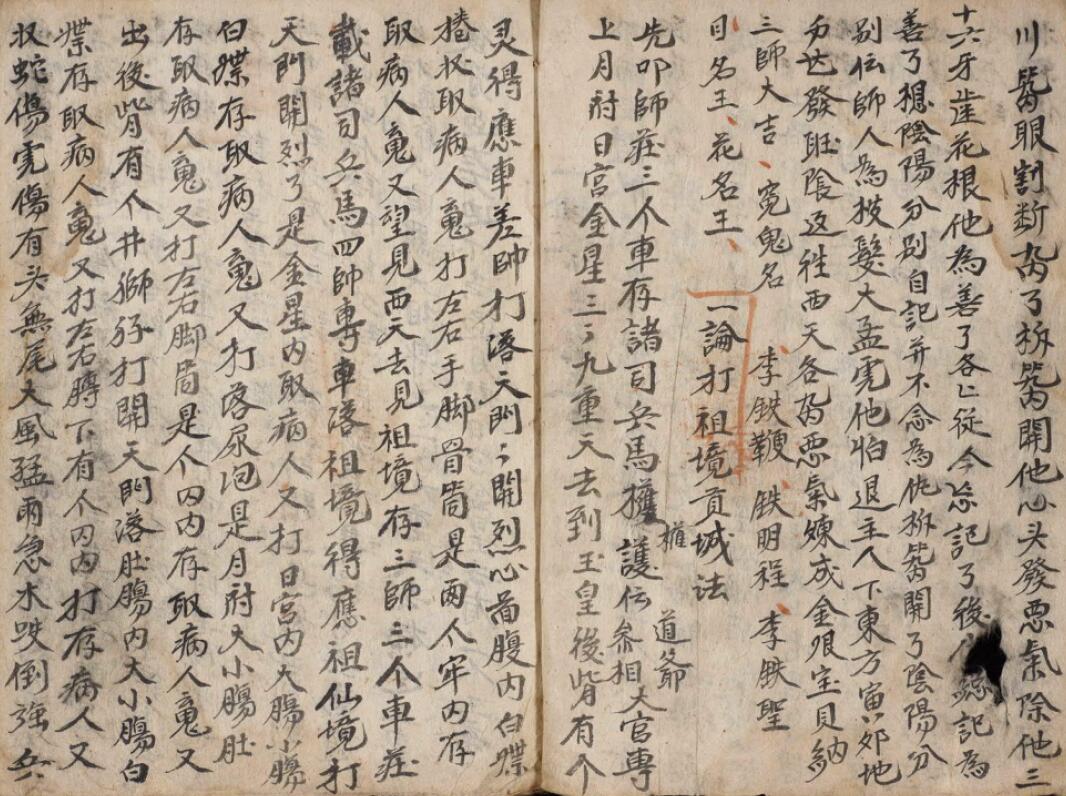 川筶眼割断角了拆筶開他心头發恶氣除他三
十六牙疌花根他為善了各上従今忘記了後記為
善了想陰陽分别自記并不念為仇拆筶開了陰陽分
别伝師人為披髮大孟虎他怕退主人下東方寅卯地
發旺陰返徃西天各角恶氣煉成金艮宝貝納
三師大吉、寃鬼名 李鉄鞭、鉄明程、李鉄聖
日名王、花名王、
一論打祖境貢城法
先叩師莊三个車存諸司兵馬擁護伝參相大官專
擁 道爺
上月府日宮金星三〻九重天去到玉皇後背有个
灵得應車差帥打落天門〻開烈心面腹内白蝶
棬扙取病人䰟打左右手脚骨筒是两个牢内存
取病人䰟又望見西天去見祖境存三師三个車莊
載諸司兵馬四帥專車落祖境得應祖仙境打
天門開烈了是金星内取病人又打日宮内大膓小膓
白蝶存取病人䰟又打落尿泡是月府大小膓肚
存取病人䰟又打左右脚筒是个内内存取病人䰟又
出後背有个井獅孖打開天門落肚膓内大小膓白
蝶存取病人䰟又打左右膊下有个内内打存病人又
扙蛇傷虎傷有头無尾大風猛雨急水跌倒強兵